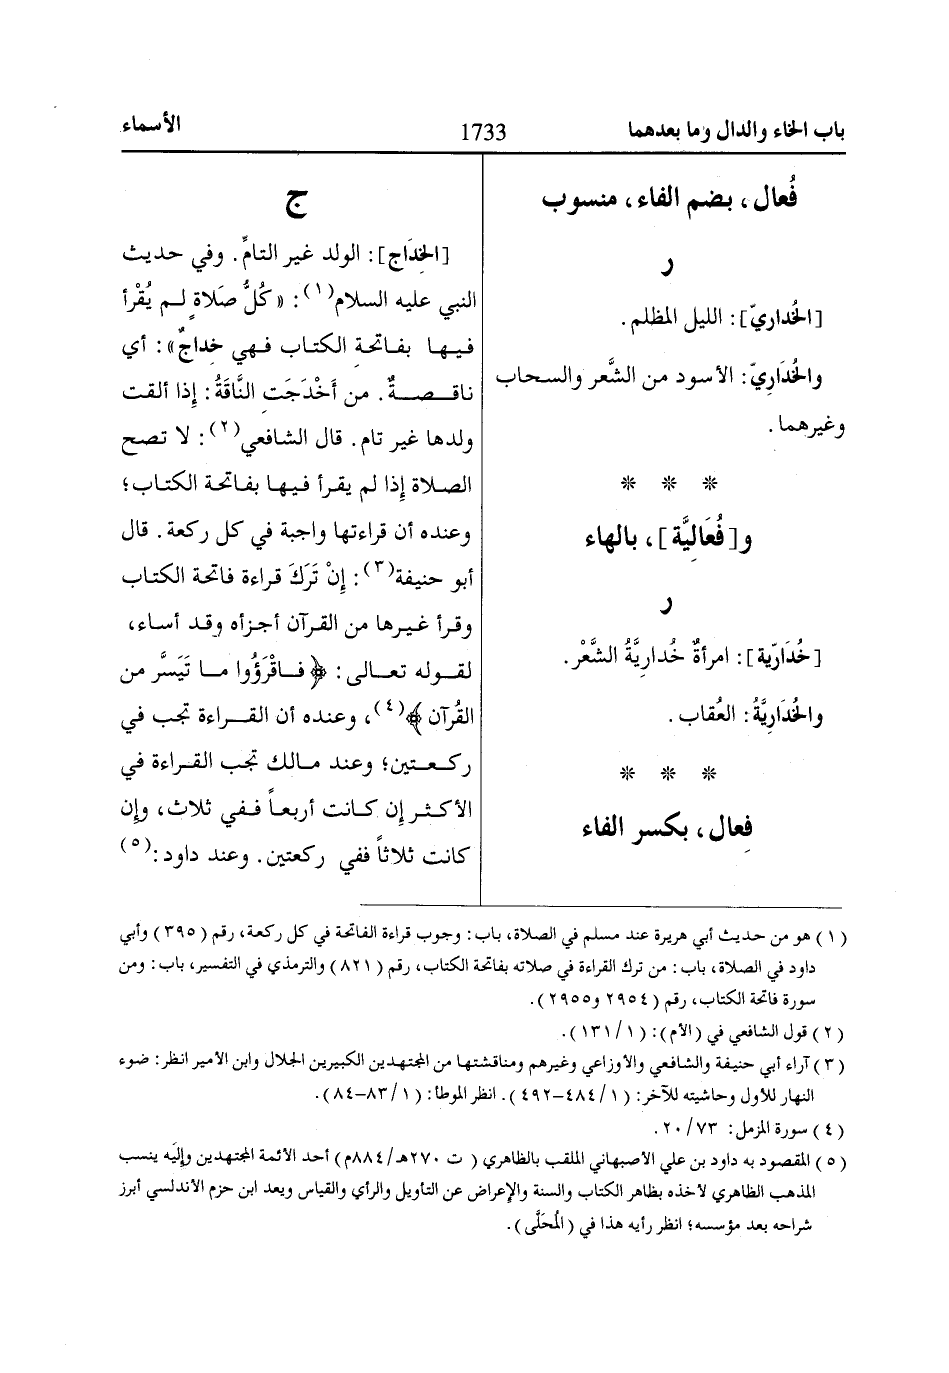 باب الخاء والدال وما بعدهما 1733 الأسماء
فُعال، بضم الفاء، منسوب
ر
[الخُداريّ]: الليل المظلم.
والخُدَارِيّ: الأسود من الشَّعر والسحاب
وغيرهما.
* * *
و[فُعَاليَّة]، بالهاء
ر
[خُدَاريّة]: امرأةٌ خُداريَّةُ الشَّعْر.
والخُدَاريَّةُ: العُقاب.
* * *
فِعال، بكسر الفاء
ج
[الخِدَاج]: الولد غير التامِّ. وفي حديث
النبي عليه السلام(١): «كُلُّ صَلاةٍ لـم يُقْرأ
فيـهـا بفـاتحـة الكتـاب فـهي خداجٌ»: أي
ناقـصـــةٌ. من أَخْدَجَتِ النَّاقَةُ: إذا ألقت
ولدها غير تام. قال الشافعي(٢): لا تصح
الصلاة إذا لم يقرأ فيـها بفاتحة الكتاب؛
وعنده أن قراءتها واجبة في كل ركعة. قال
أبو حنيفة(٣): إنْ تَرَكَ قراءة فاتحة الكتاب
وقرأ غيـرها من القـرآن أجـزأه وقـد أساء،
لقـولـه تعـالـى: ﴿فـاقْرَؤُوا مـا تَيَسَّر من
القُرآن﴾(٤)، وعنده أن القــراءة تجب في
ركـعـتين؛ وعند مـالـك تجب القـراءة في
الأكـثـر إن كـانت أربعـاً فـفي ثلاث، وإن
كانت ثلاثاً ففي ركعتين. وعند داود:(٥)
(١) هو من حديث أبي هريرة عند مسلم في الصلاة، باب: وجوب قراءة الفاتحة في كل ركعة، رقم (٣٩٥) وأبي
داود في الصلاة، باب: من ترك القراءة في صلاته بفاتحة الكتاب، رقم (٨٢١) والترمذي في التفسير، باب: ومن
سورة فاتحة الكتاب، رقم (٢٩٥٤ و٢٩٥٥).
(٢) قول الشافعي في (الأم): (١/١٣١).
(٣) آراء أبي حنيفة والشافعي والأوزاعي وغيرهم ومناقشتها من المجتهدين الكبيرين الجلال وابن الأمير انظر: ضوء
النهار للأول وحاشيته للآخر: (١/٤٨٤-٤٩٢). انظر الموطأ: (١/٨٣-٨٤).
(٤) سورة المزمل: ٢٠/٧٣.
(٥) المقصود به داود بن علي الأصبهاني الملقب بالظاهري (ت ٢٧٠هـ/٨٨٤م) أحد الأئمة المجتهدين وإليَه ينسب
المذهب الظاهري لأخذه بظاهر الكتاب والسنة والإعراض عن التأويل والرأي والقياس ويعد ابن حزم الأندلسي أبرز
شراحه بعد مؤسسه؛ انظر رأيه هذا في (المُحَلَّى).